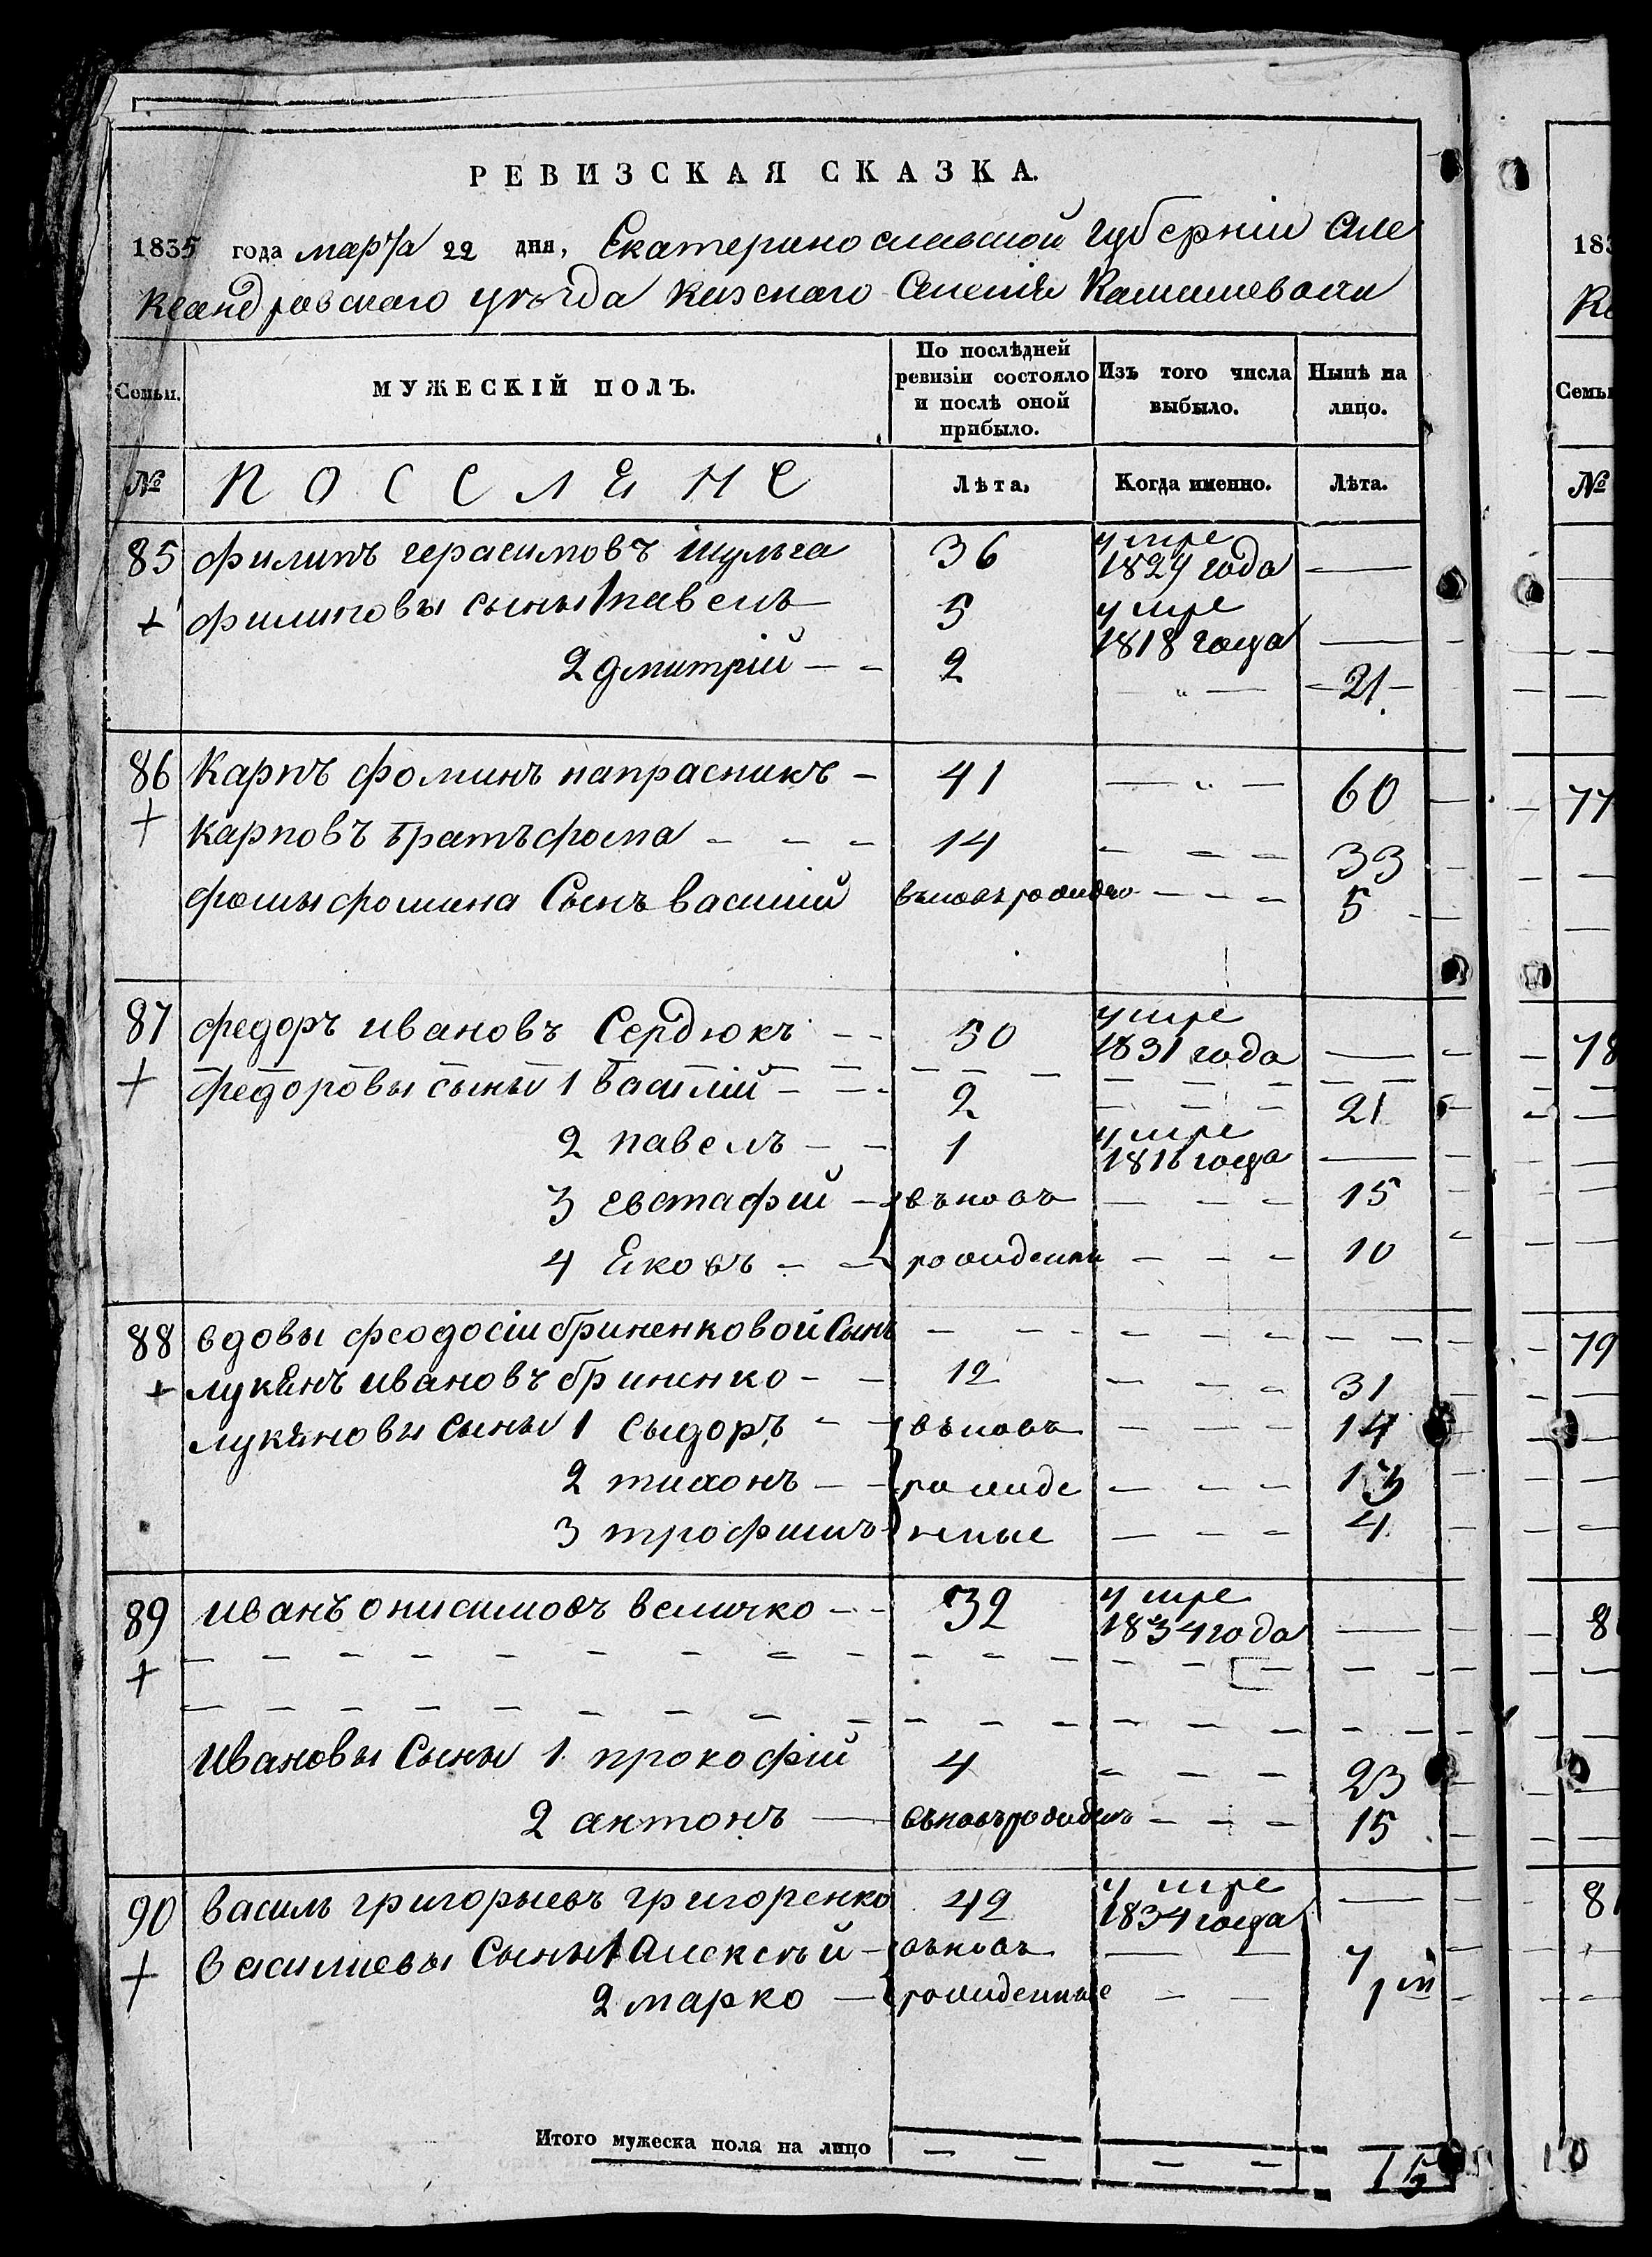 РЕВИЗСКАЯ СКАЗКА.
1835 года марта 22 дня, Екатеринославской губерніи Але
ксандровскаго уѣзда казенаго селенія Камишеваси
Семьи. МУЖЕСКІЙ ПОЛЪ. По послѣдней ревизіи состояло и послѣ оной прибыло. Изъ того числа выбыло. Нынѣ на лицо.
№ ПОСЕЛЕНЕ Лѣта, Когда именно. Лѣта.
85 филипъ герасимовъ шульга 36 умре 1829 года —
+ филиповы сыны 1 павелъ 5 умре 1818 года —
2 дмитрій — — 2 — " — — 21 —
86 Карпъ фоминъ напрасникъ — 41 — " — 60
+ Карповъ братъ фома — — — 14 — — — 33
фомы фомина Сынъ василій вновь рожденъ — — — 5
87 федоръ ивановъ Сердюкъ — — 50 умре 1831 года —
+ федоровы сыны 1 василій — — — 2 — — — 21
2 павелъ — — 1 умре 1816 года —
3 евстафій — вьновь — — — 15
4 Яковъ — — рожденни — — — 10
88 вдовы феодосіи бриненковой Сынъ — — — — — — — —
+ лукянъ ивановъ бриненко — — 12 — — — 31
лукяновы сыны 1 сыдоръ — — вьновь — — — 14
2 тихонъ — — рожде — — — 13
3 трофимъ — нные — — — 4
89 иванъ онисимовъ величко — — 32 умре 1834 года —
+ — — — — — — — — — — — — — — — —
— — — — — — — — — — — — — — — —
ивановы Сыны 1 прокофій 4 — — — 23
2 антонъ — вьновь рожденъ — — — 15
90 василь григорьевъ григоренко 42 умре 1834 года —
+ василиевы Сыны 1 Алексѣй — вьновь — — 7
2 марко — рожденные — — 1 м
Итого мужеска пола на лицо — — — — 15
183
Семьи
№
77
78
79
8
8
10